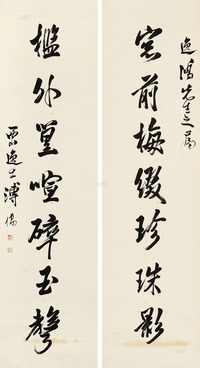 逸鴻先生之屬
窗前梅綴珍珠影
檻外篁喧碎玉聲
西山逸士溥儒